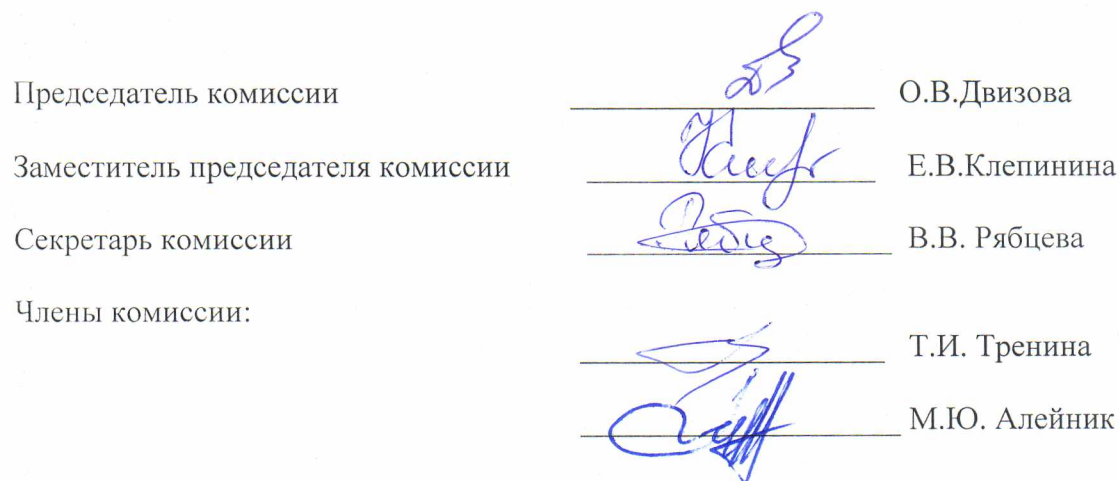 Председатель комиссии О.В.Двизова
Заместитель председателя комиссии Е.В.Клепинина
Секретарь комиссии В.В. Рябцева
Члены комиссии:
Т.И. Тренина
М.Ю. Алейник